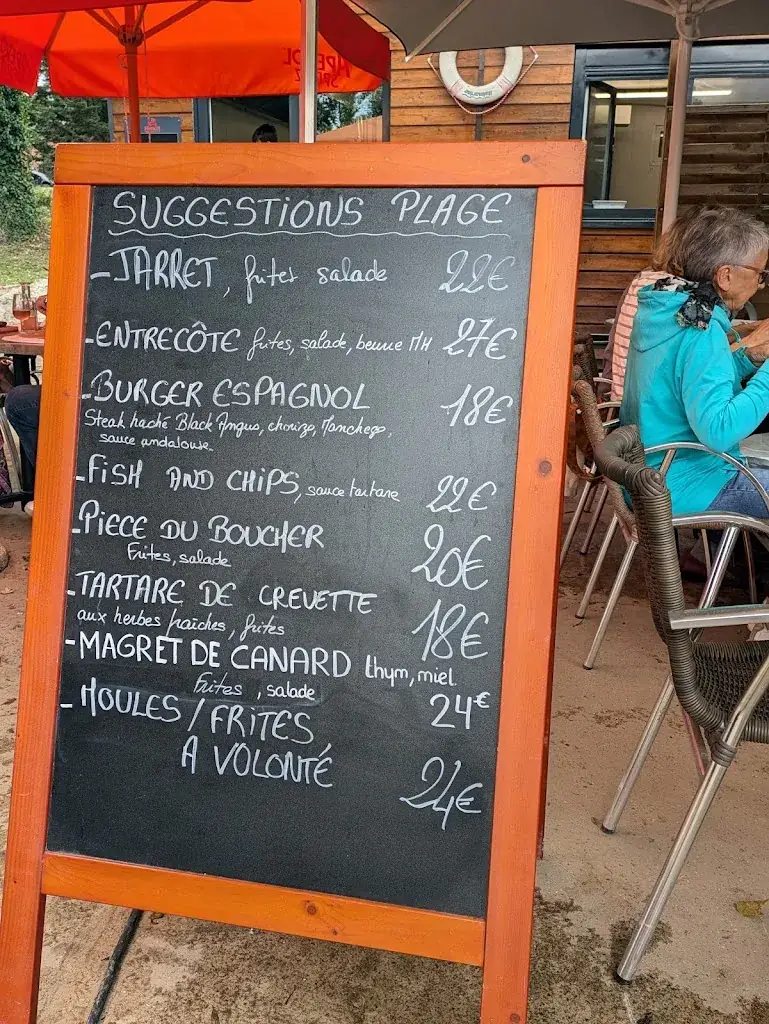 APEROL
SPRITZ
SUGGESTIONS PLAGE
-JARRET, frites salade 22€
-ENTRECÔTE frites, salade, beurre MH 27€
-BURGER ESPAGNOL 18€
Steak haché Black Angus, chorizo, Manchego,
sauce andalouse
-FISH AND CHIPS, sauce tartare 22€
-PIECE DU BOUCHER 20€
Frites, salade
-TARTARE DE CREVETTE 18€
aux herbes fraiches, frites
-MAGRET DE CANARD thym, miel
Frites, salade 24€
-MOULES/FRITES
A VOLONTÉ 24€